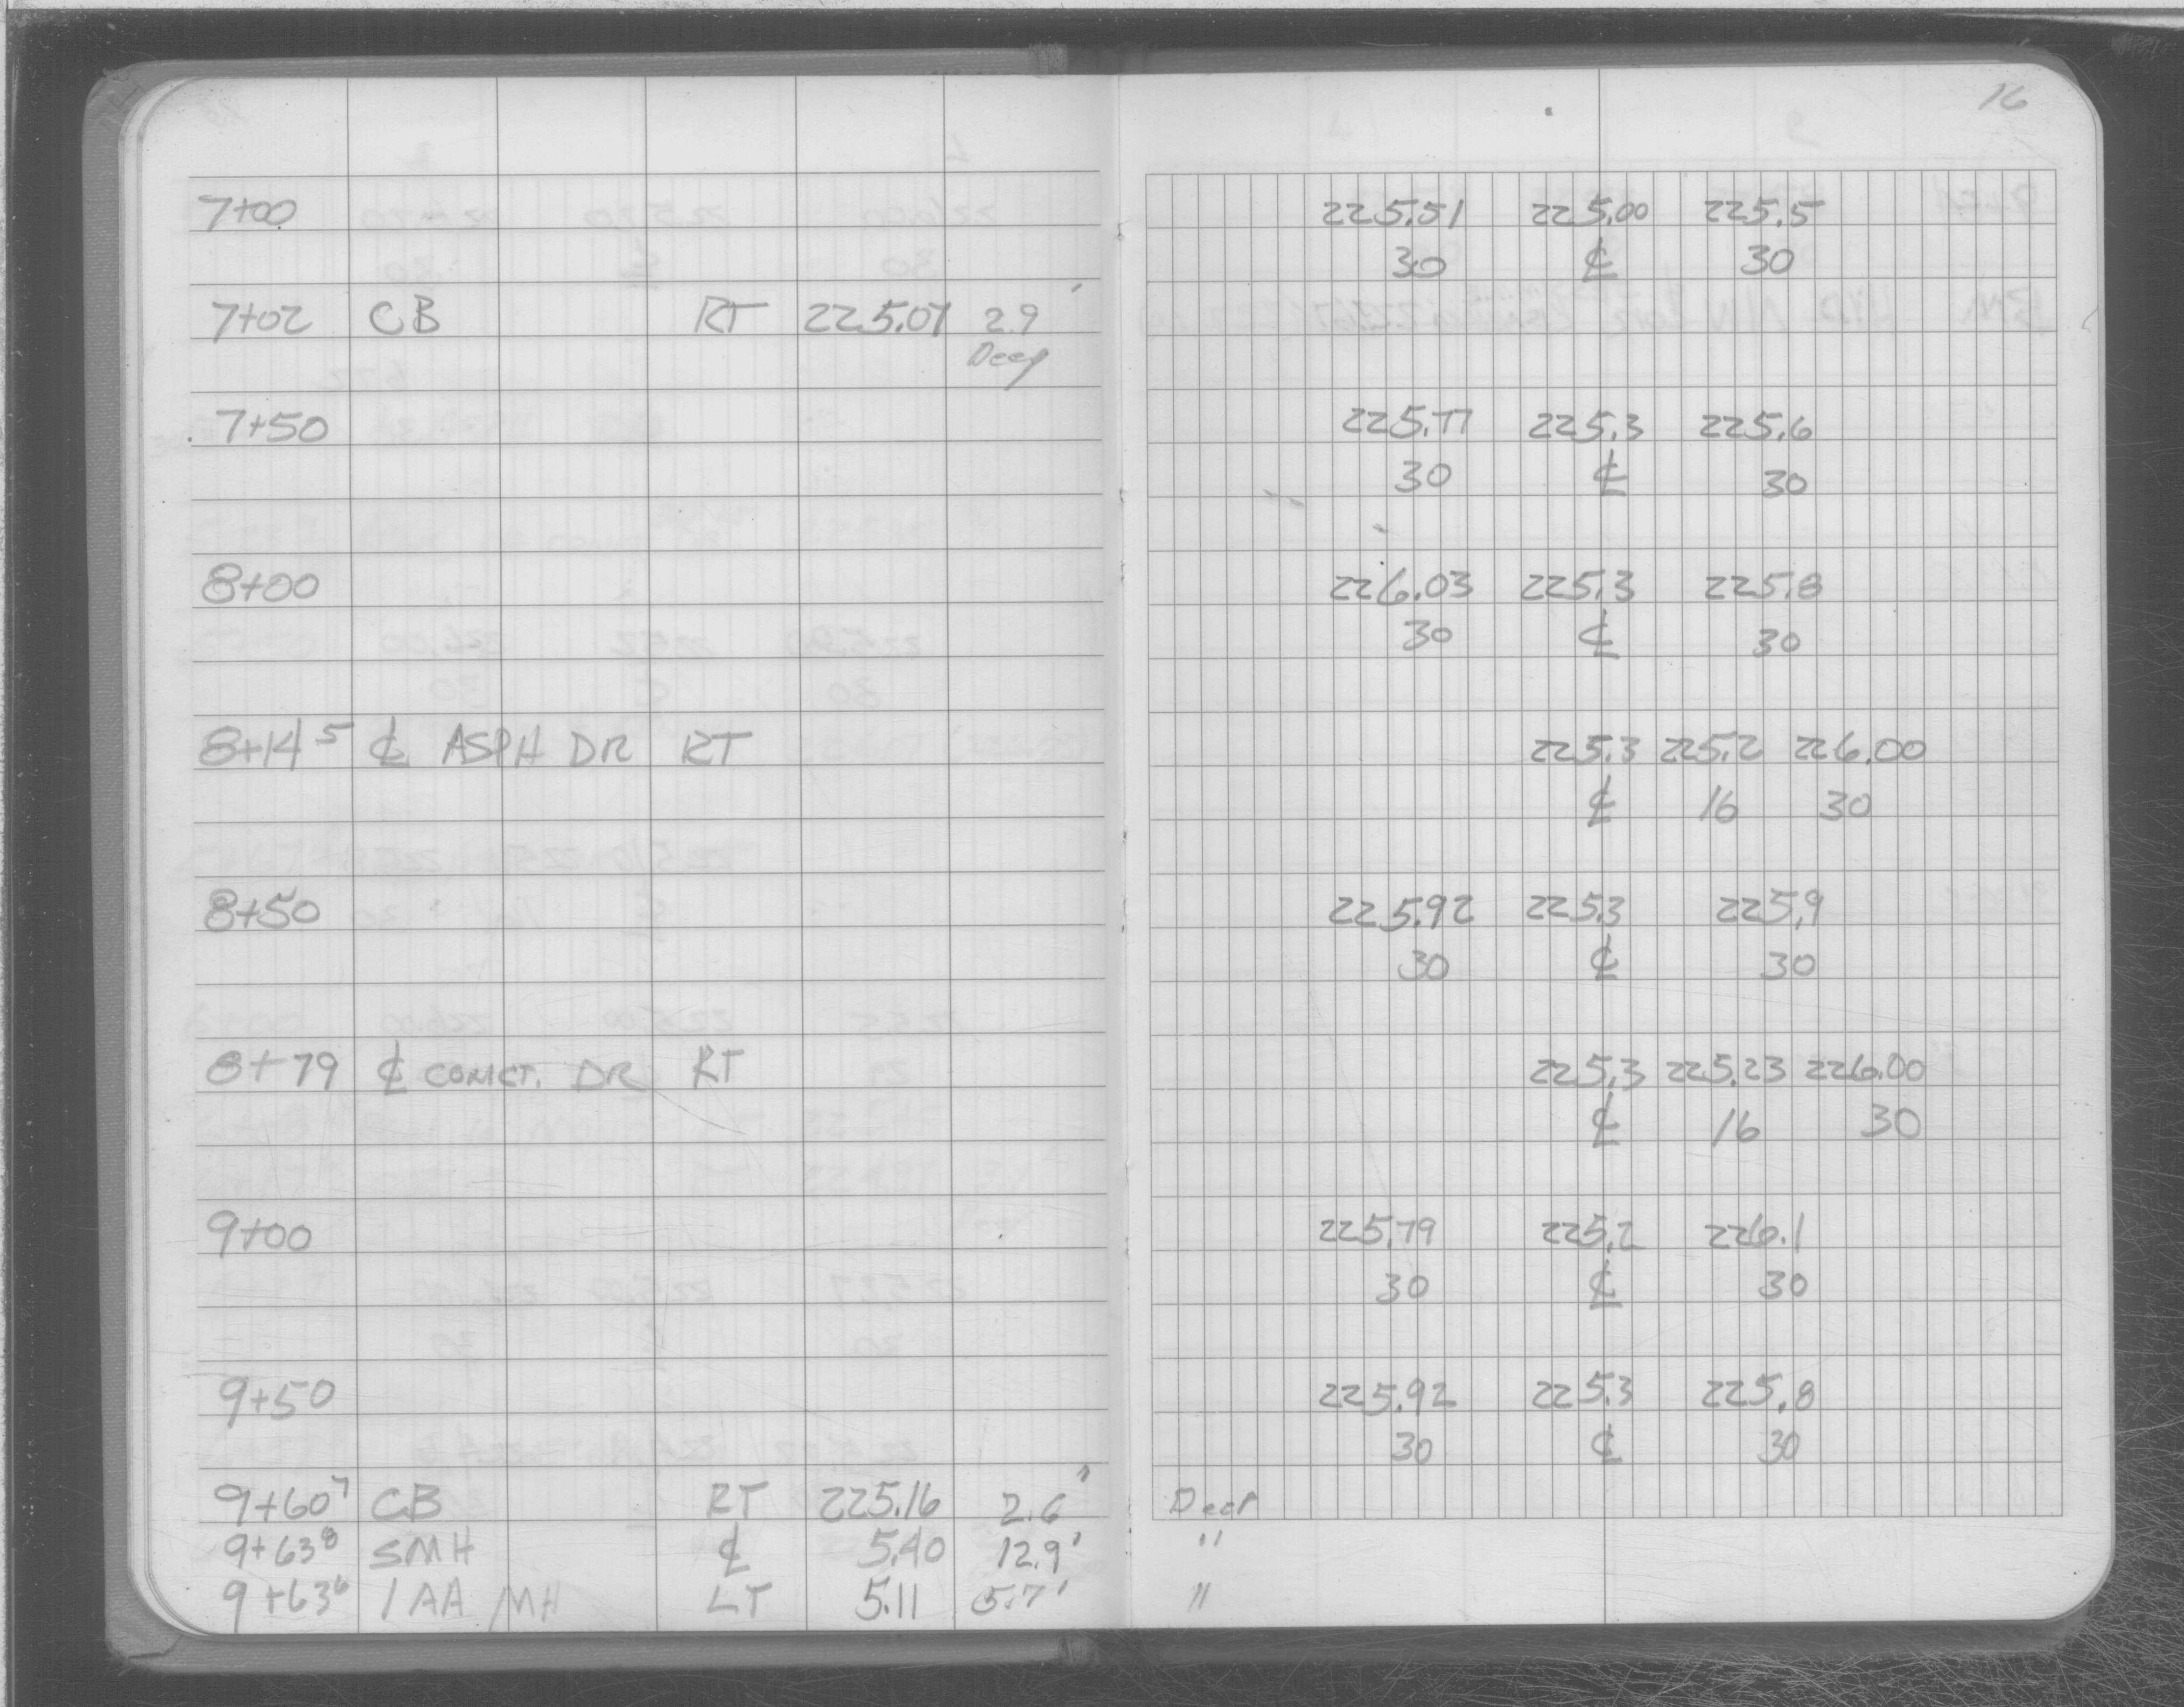 16
7+00 225.51 225.00 225.5
30 ℄ 30
7+02 CB RT 225.07 2.9'
Deep
7+50 225.77 225.3 225.6
30 ℄ 30
8+00 226.03 225.3 225.8
30 ℄ 30
8+14⁵ ℄ ASPH DR RT 225.3 225.2 226.00
℄ 16 30
8+50 225.92 225.3 225.9
30 ℄ 30
8+79 ℄ CONCT. DR RT 225.3 225.23 226.00
℄ 16 30
9+00 225.79 225.2 226.1
30 ℄ 30
9+50 225.92 225.3 225.8
30 ℄ 30
9+60⁷ CB RT 225.16 2.6' Deep
9+63⁸ SMH ℄ 5.40 12.9' "
9+63⁶ MH LT 5.11 5.7' "